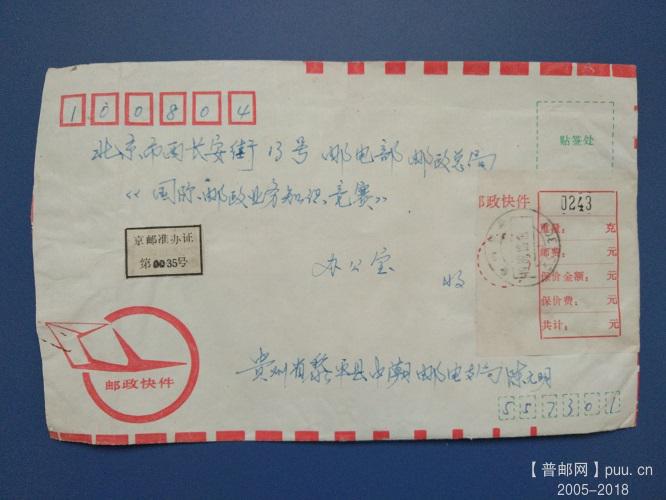 100804
北京市西长安街13号 邮电部 邮政总局
贴签处
《国际邮政业务知识竞赛》
邮政快件
0243
重量: 克
邮费: 元
保价金额: 元
保价费: 元
共计: 元
京邮准办证
第0035号
办公室 收
邮政快件
贵州省黎平县中潮邮电支局 陈元明
557301
【普邮网】puu.cn
2005-2018